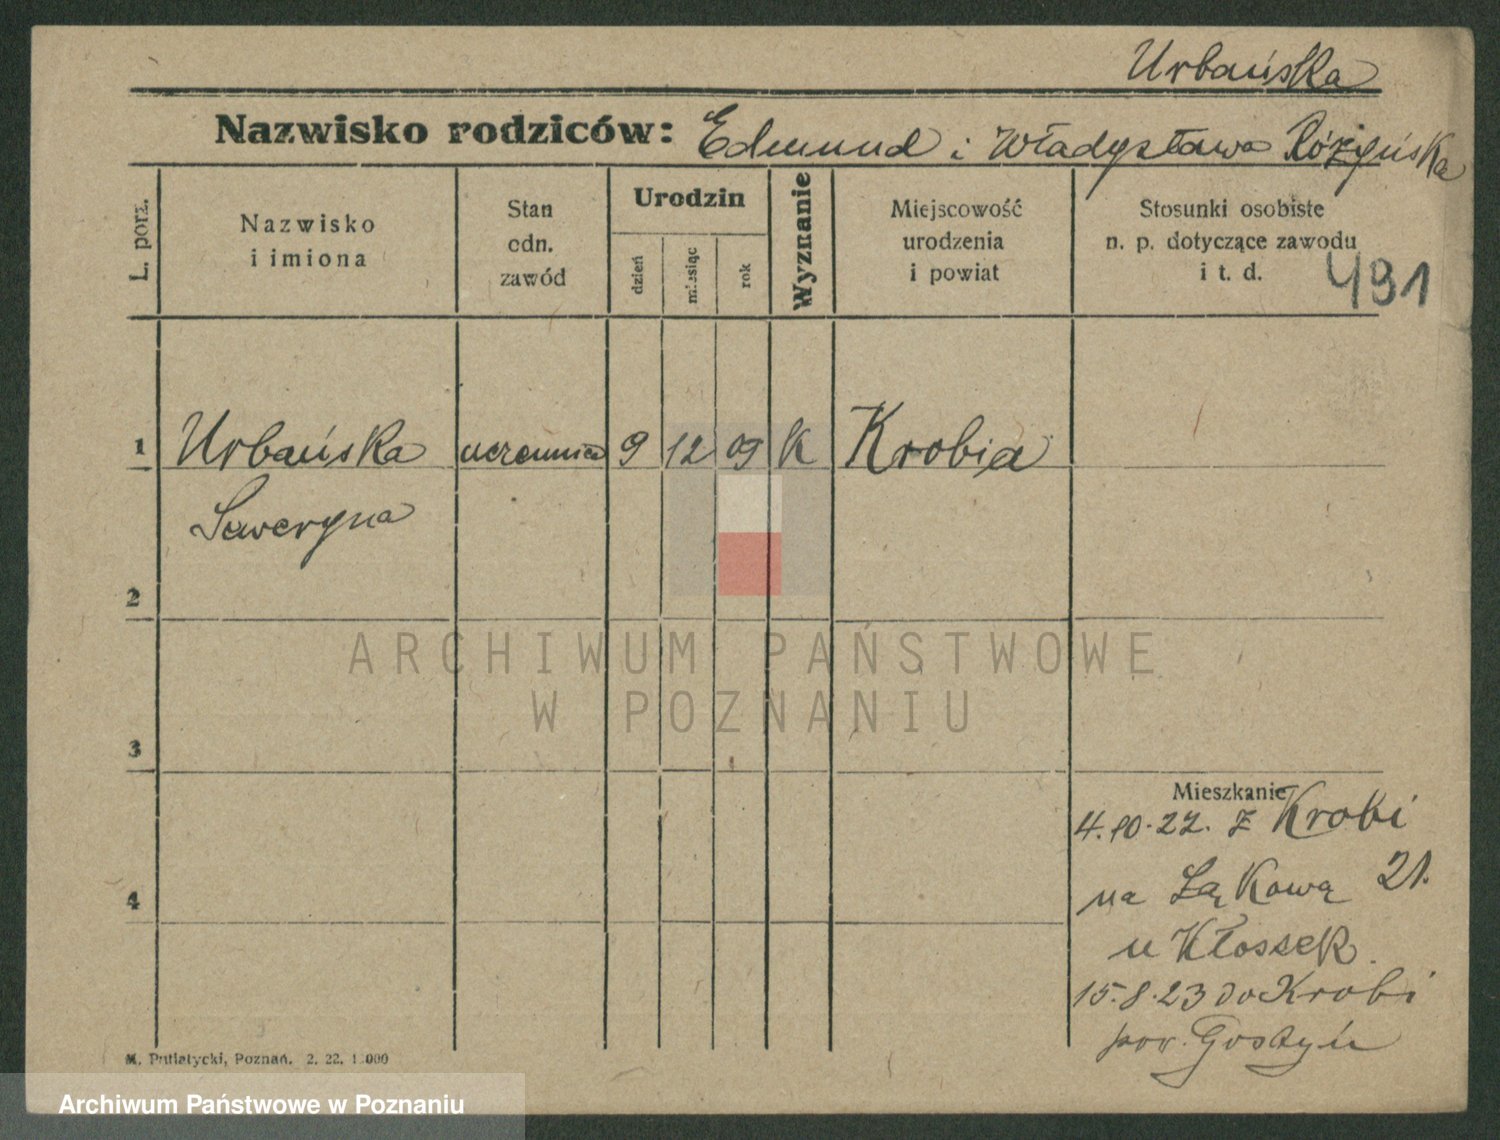 Urbańska
Nazwisko rodziców: Edmund i Władysława Różyńska
L. porz.
Nazwisko
i imiona
Stan
cdn.
zawód
Urodzin
dzień
miesiąc
rok
Wyznanie
Miejscowość
urodzenia
i powiat
Stosunki osobiste
n. p. dotyczące zawodu
i t. d.
491
1 Urbańska uczennica 9 12 09 K Krobia
Seweryna
2
ARCHIWUM PAŃSTWOWE
W POZNANIU
3
Mieszkanie
4.10.22. z Krobi
na Łąkową 21.
4
u Kłossek.
15.8.23 do Krobi
pow. Gostyń
M. Putiatycki, Poznań. 2. 22. 1.000
Archiwum Państwowe w Poznaniu